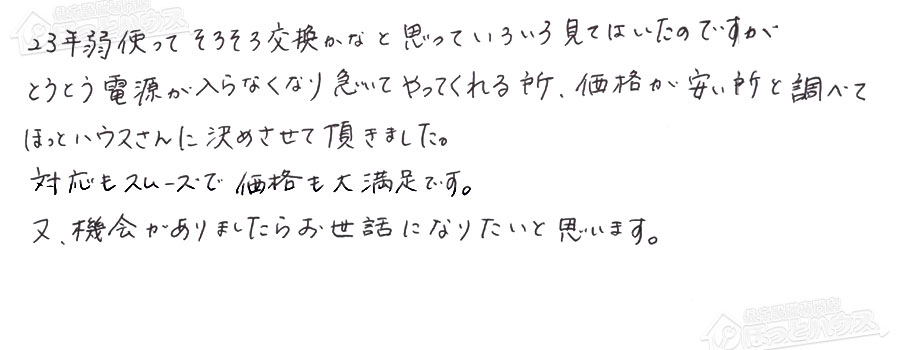 23年弱使ってそろそろ交換かなと思っていろいろ見てはいたのですが
とうとう電源が入らなくなり急いでやってくれる所、価格が安い所と調べて
ほっとハウスさんに決めさせて頂きました。
対応もスムーズで価格も大満足です。
又、機会がありましたらお世話になりたいと思います。
ほっとハウス
ほっとハウス